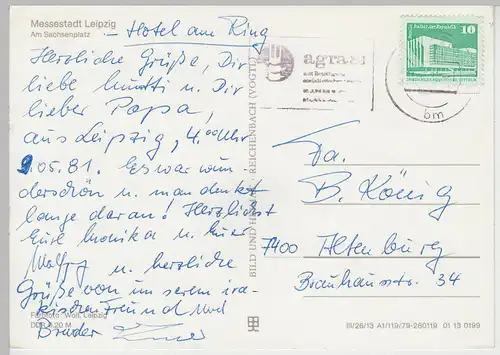 Messestadt Leipzig
Am Sachsenplatz
- Hotel am Ring
Herzliche Grüße, Dir
liebe Mutti u. Dir
lieber Papa,
aus Leipzig, 4.00 Uhr
9.05.81. Es war wun-
derschön u. man denkt
lange daran! Herzlichst
Eure Monika u. Euer
Wolfg u. herzliche
Grüße von unserem ira-
kischen Freund und
Bruder
Farbfoto: Woll, Leipzig
DDR 0,20 M
BILD UND HEIMAT REICHENBACH (VOGTL)
agra
10
bm
Fa.
B. König
7400 Altenburg
Brauhausstr. 34
III/26/13 A1/119/79-260119 01 13 0199